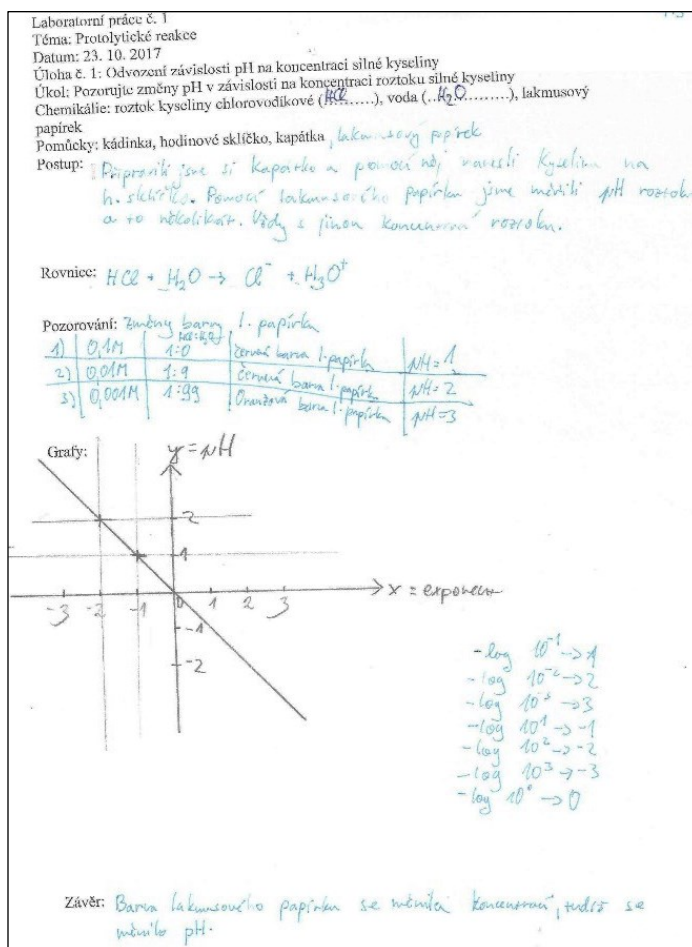 Laboratorní práce č. 1
Téma: Protolytické reakce
Datum: 23. 10. 2017
Úloha č. 1: Odvození závislosti pH na koncentraci silné kyseliny
Úkol: Pozorujte změny pH v závislosti na koncentraci roztoku silné kyseliny
Chemikálie: roztok kyseliny chlorovodíkové (HCl........), voda (...H₂O............), lakmusový
papírek
Pomůcky: kádinka, hodinové sklíčko, kapátka, lakmusový papírek
Postup: Připravili jsme si kapátko a pomocí něj nanesli kyselinu na
h. sklíčko. Pomocí lakmusového papírku jsme měřili pH roztoku
a to několikrát. Vždy s jinou koncentrací roztoku.
Rovnice: HCl + H₂O → Cl⁻ + H₃O⁺
Pozorování: Změny barvy l. papírku
1) 0,1M 1:0 červená barva l. papírku pH = 1
2) 0,01M 1:9 červená barva l. papírku pH = 2
3) 0,001M 1:99 Oranžová barva l. papírku pH = 3
Grafy: y = pH
2
1
-3 -2 -1 0 1 2 3 x = exponent
-1
-2
-log 10⁻¹ → 1
-log 10⁻² → 2
-log 10⁻³ → 3
-log 10¹ → -1
-log 10² → -2
-log 10³ → -3
-log 10⁰ → 0
Závěr: Barva lakmusového papírku se měnila koncentrací, tudíž se
měnilo pH.